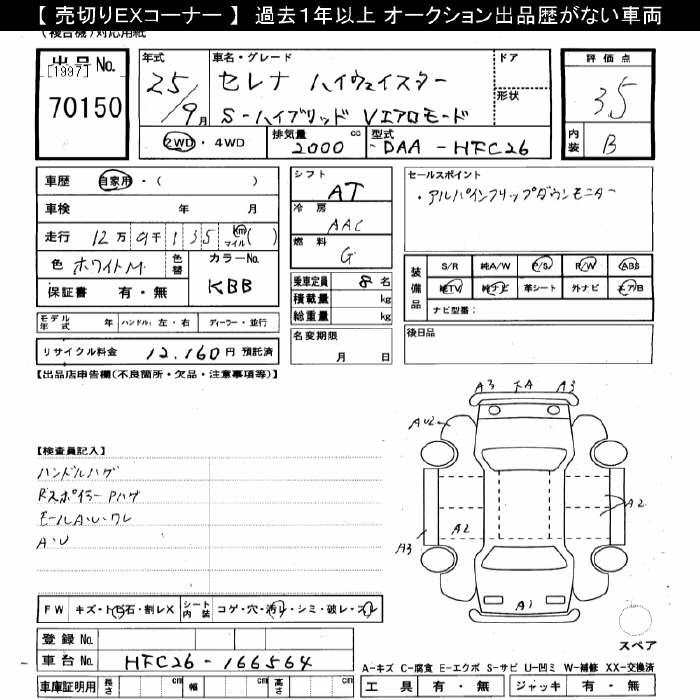 【 売切りEXコーナー 】 過去１年以上 オークション出品歴がない車両
(複合機)対応用紙
出品No.
[1997]
70150
年式
25/9月
車名・グレード
セレナ ハイウェイスター
S-ハイブリッド Vエアロモード
ドア
形状
評価点
3.5
内装
B
2WD・4WD
排気量 2000 cc
型式 DAA-HFC26
車歴 自家用・( )
車検 年 月
走行 12万9千135 km マイル( )
色 ホワイトM
色替
カラーNo. KBB
保証書 有・無
シフト AT
冷房 AAC
燃料 G
乗車定員 8名
積載量 kg
総重量 kg
セールスポイント
・アルパインフリップダウンモニター
装備品
S/R 純A/W P/S R/W ABS
純TV 純ナビ 革シート 外ナビ エアB
ナビ型番：
モデル年式 年 ハンドル：左・右 ディーラー・並行
リサイクル料金 12,160円 預託済
名変期限 月 日
後日品
【出品店申告欄(不良箇所・欠品・注意事項等)】
【検査員記入】
ハンドルハゲ
Rスポイラー Pハゲ
モールA・U・ワレ
A・U
A3 A3
AU2
A2
A2
A3
A1
FW キズ・トビ石・割レX
シート内装 コゲ・穴・汚レ・シミ・破レ・スレ
登録No.
車台No. HFC26-166564
車庫証明用 長さ cm 幅 cm 高さ cm
スペア
A-キズ C-腐食 E-エクボ S-サビ U-凹ミ W-補修 XX-交換済
工具 有・無 ジャッキ 有・無